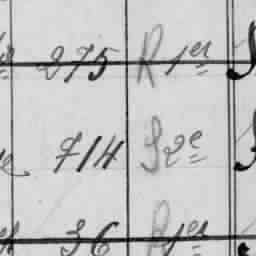 275 R 1er
714 S 2e
36 R 1er